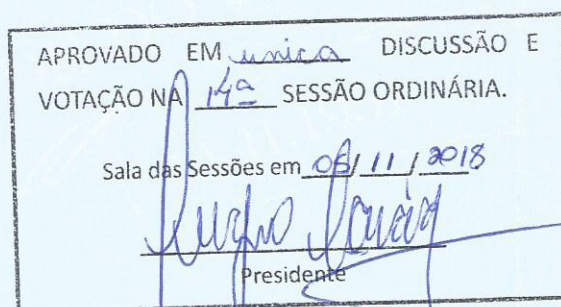 APROVADO EM unica DISCUSSÃO E
VOTAÇÃO NA 14ª SESSÃO ORDINÁRIA.
Sala das Sessões em 06/11/2018
Presidente